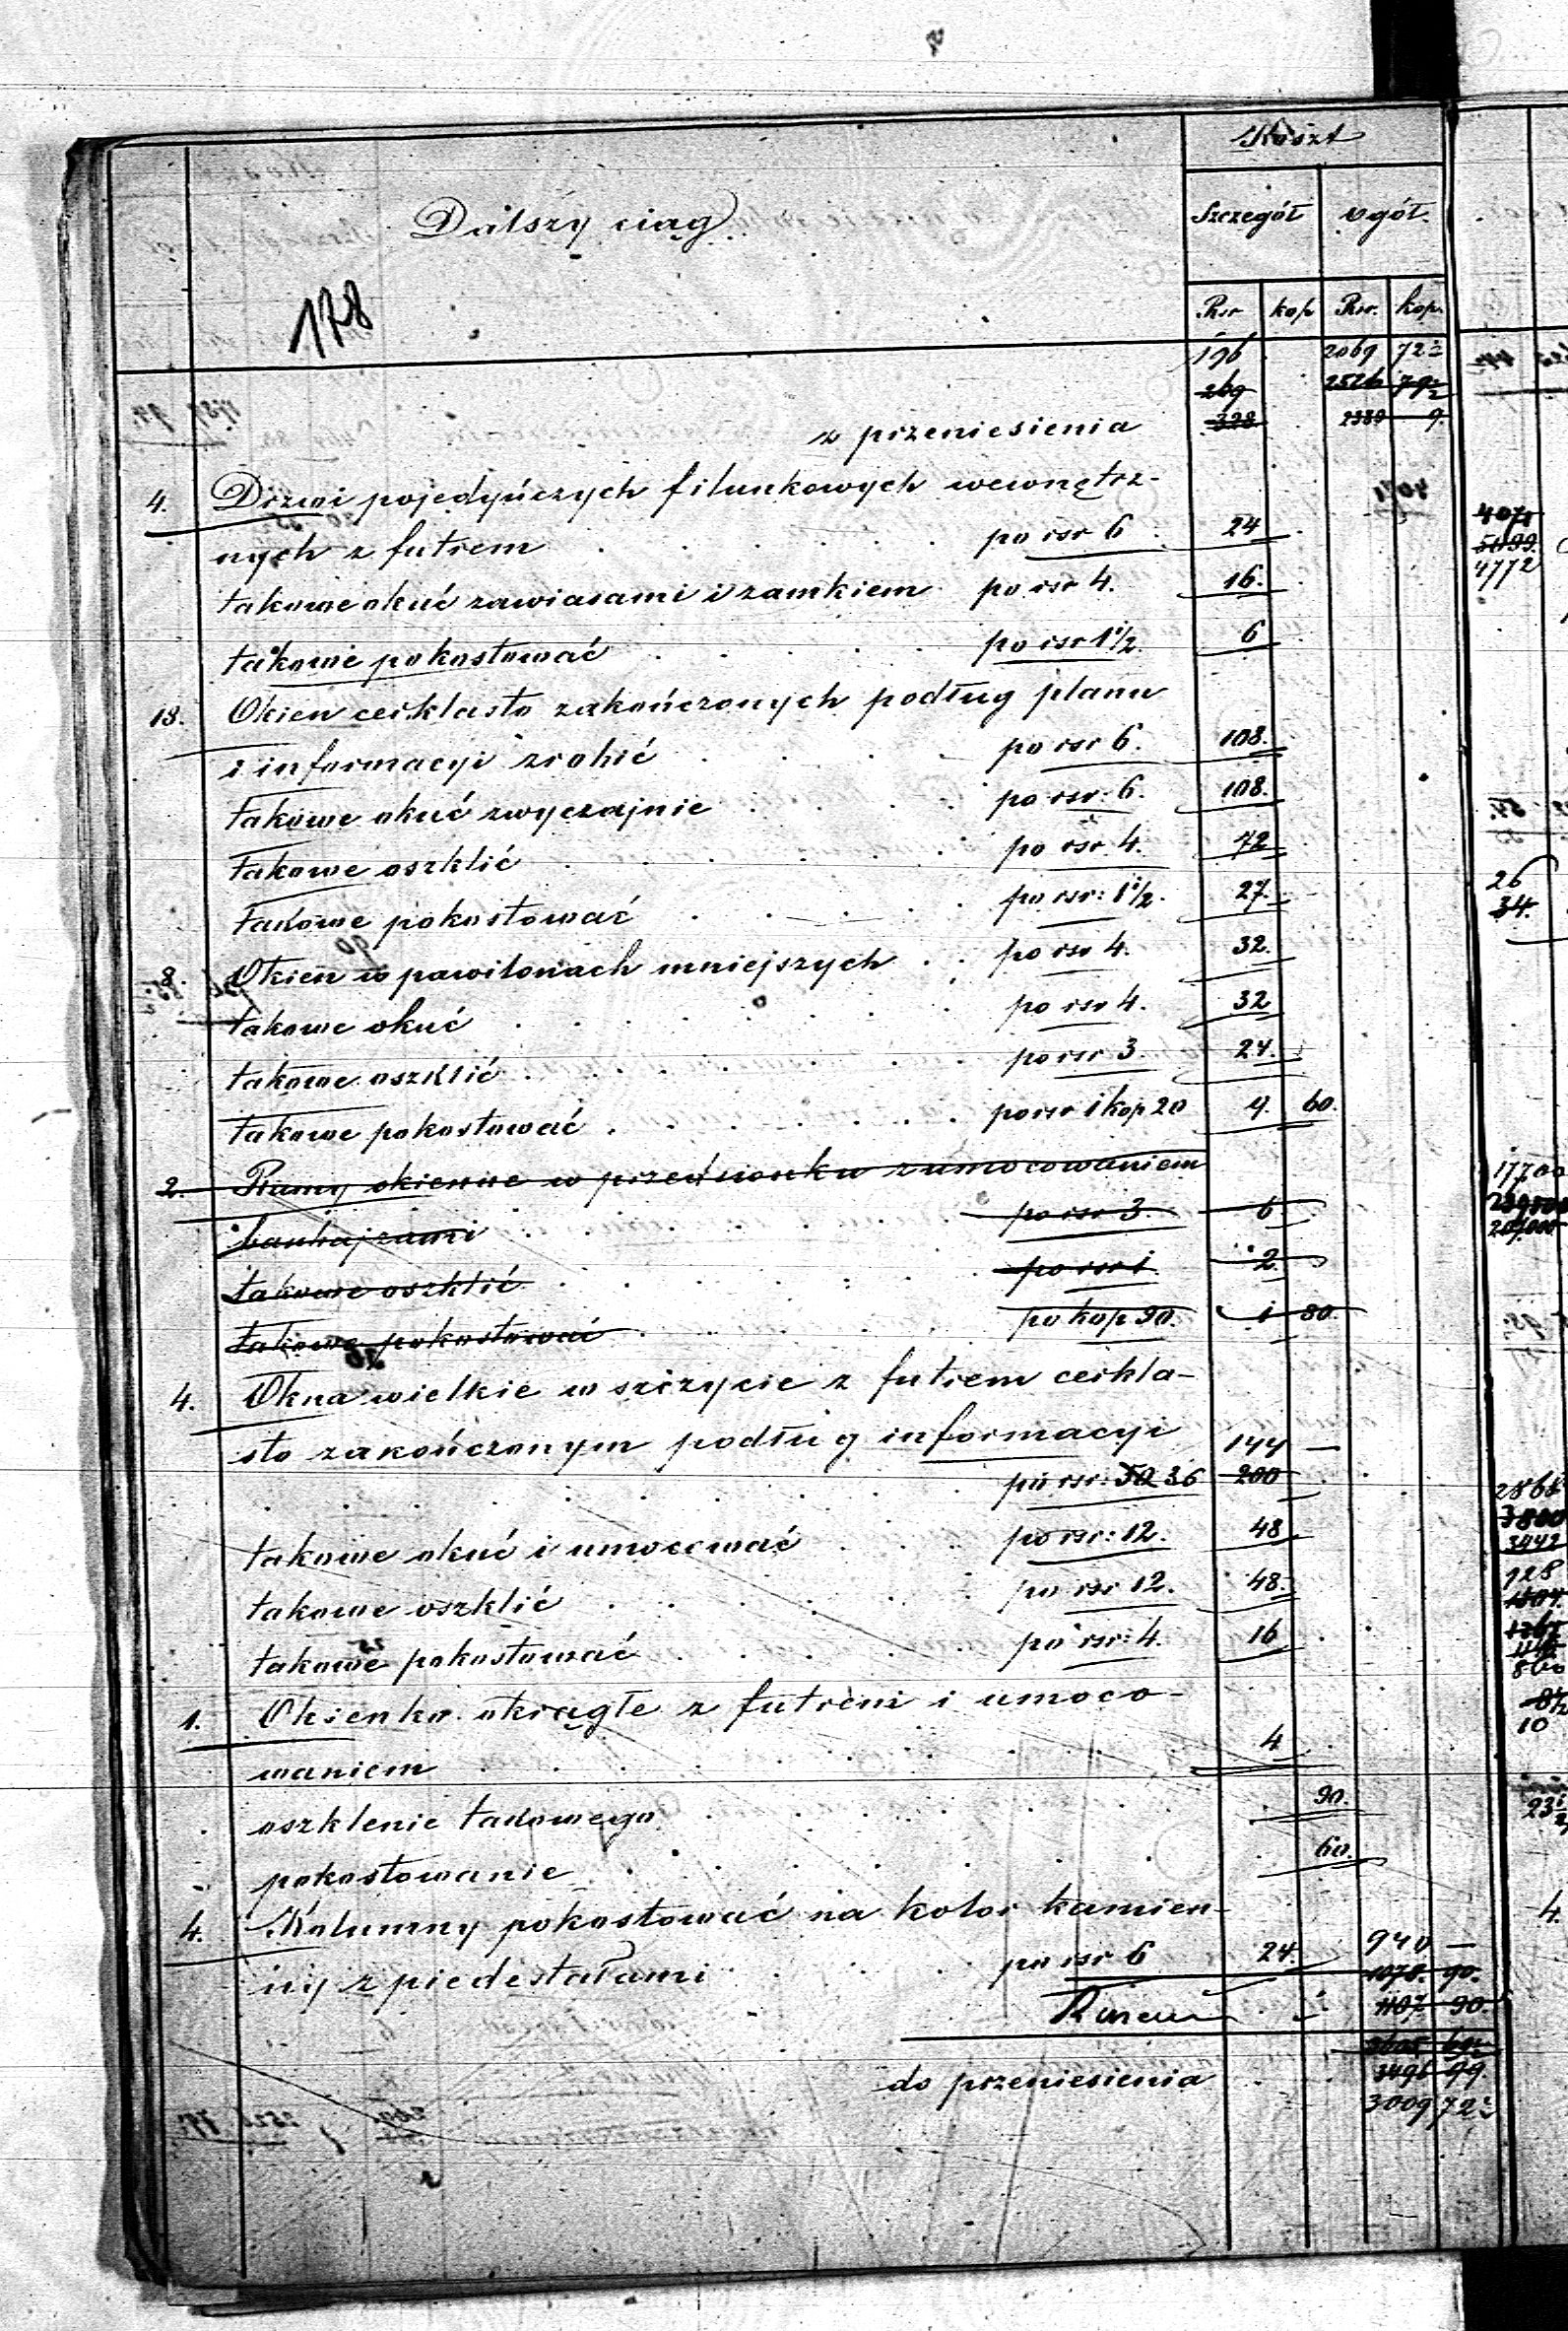 Koszt
Dalszy ciąg.
Szczegół ogół.
178
Rsr kop Rsr. kop.
196 2069 72½
269 2526 79½
z przeniesienia 328 2389 9.
4. Drzwi pojedyńczych filunkowych wewnętrz-
nych z futrem po rsr 6 24
takowe okuć zawiasami i zamkiem po rsr 4. 16.
takowe pokostować po rsr 1½ 6
18. Okien cerklasto zakończonych podług planu
i informacyi zrobić po rsr 6. 108.
takowe okuć zwyczajnie po rsr: 6. 108.
takowe oszklić po rsr. 4. 72
takowe pokostować po rsr: 1½. 27.
8. Okien w pawilonach mniejszych po rsr 4. 32.
takowe okuć po rsr 4. 32
takowe oszklić po rsr 3. 24.
takowe pokostować po rsr 1 kop 20 9. 60.
2. Ramy okienne w przedsionku z umocowaniem
bankajzami po rsr 3. 6
takowe oszklić po rsr 1 2.
takowe pokostować po kop 90. 1 80.
4. Okna wielkie w szczycie z futrem cerkla-
sto zakończonym podług informacyi 144 —
po rsr: 50 36 200
takowe okuć i umocować po rsr: 12. 48
takowe oszklić po rsr 12. 48.
takowe pokostować po rsr: 4. 16
1. Okienko okrągłe z futrem i umoco-
waniem 4
oszklenie takowego 90.
pokostowanie 60.
4. Kolumny pokostować na kolor kamien-
ny z piedestałami po rsr 6 24. 940 —
1078. 90.
Razem 1107 90.
do przeniesienia 3496 99.
3009 72½